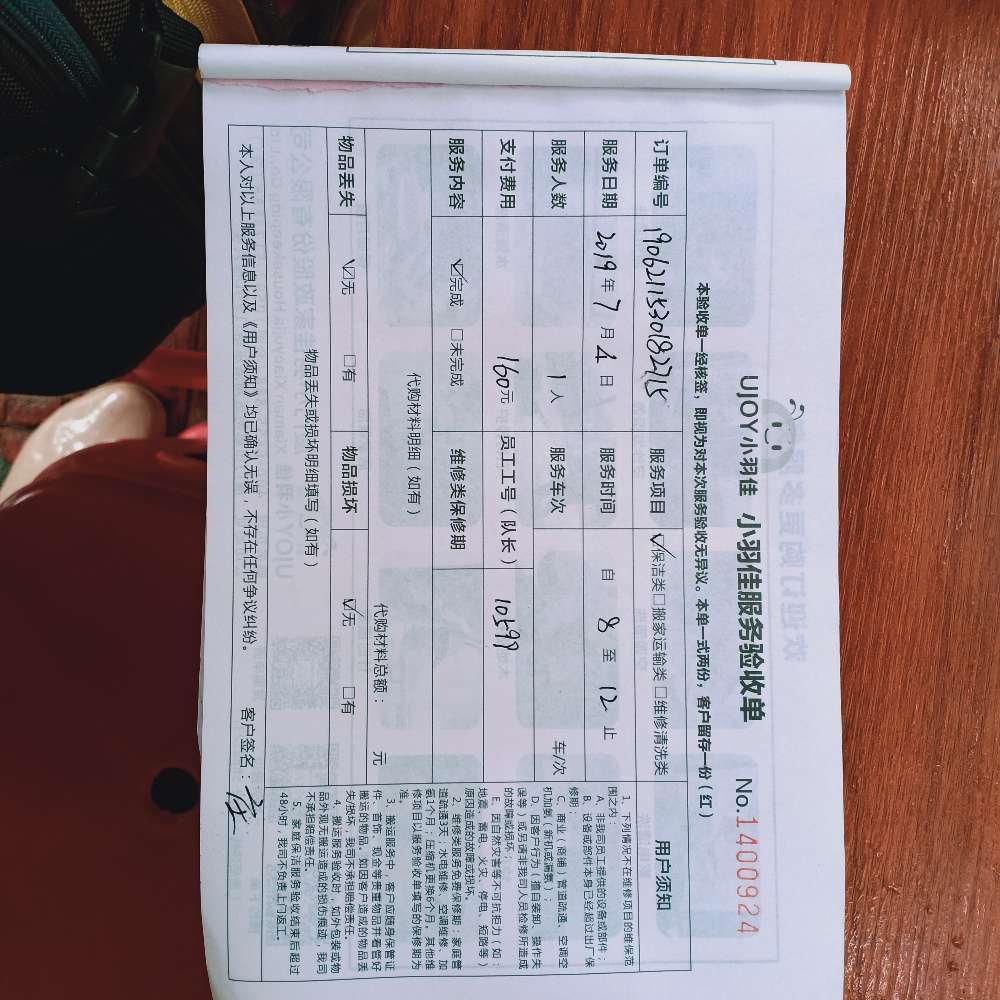 UJOY小羽佳 小羽佳服务验收单 No.1400924
本验收单一经核签，即视为对本次服务验收无异议。本单一式两份，客户留存一份（红）
订单编号 1906211530182715 服务项目 ☑保洁类☐搬家运输类☐维修清洗类
服务日期 2019年7月4日 服务时间 自8至12止
服务人数 1人 服务车次 车/次
支付费用 160元 员工工号（队长） 10599
服务内容 ☑完成 ☐未完成 维修类保修期
代购材料明细（如有）
代购材料总额： 元
物品丢失 ☑无 ☐有 物品损坏 ☑无 ☐有
物品丢失或损坏明细填写（如有）
本人对以上服务信息以及《用户须知》均已确认无误，不存在任何争议纠纷。 客户签名：
用户须知
1、下列情况不在维修项目的维保范
围之内：
A、非我司员工提供的设备或部件；
B、设备或部件本身已经超过出厂保
修期；
C、商业（商铺）管道疏通、空调空
机加氨（新机或漏氨）；
D、因客户行为（擅自装卸、操作失
误等）或另请非我司人员检修所造成
的故障或损坏；
E、因自然灾害等不可抗拒力（如：
地震、雷电、火灾、停电、短路等）
原因造成的故障或损坏。
2、维修类服务免费保修期：家庭管
道疏通3天；水电维修、空调维修、加
氨1个月；压缩机更换6个月。其他维
修项目以服务验收单填写的保修期为
准。
3、搬运服务中，客户应随身保管证
件、首饰、现金等贵重物品并看管好
搬运的物品。如因客户造成的物品丢
失/损坏，我司不承担赔偿责任。
4、搬运服务验收时，如外包装或物
品外观无搬运造成的损伤痕迹，我司
不承担赔偿责任
5、家庭保洁服务验收结束后超过
48小时，我司不负责上门返工。